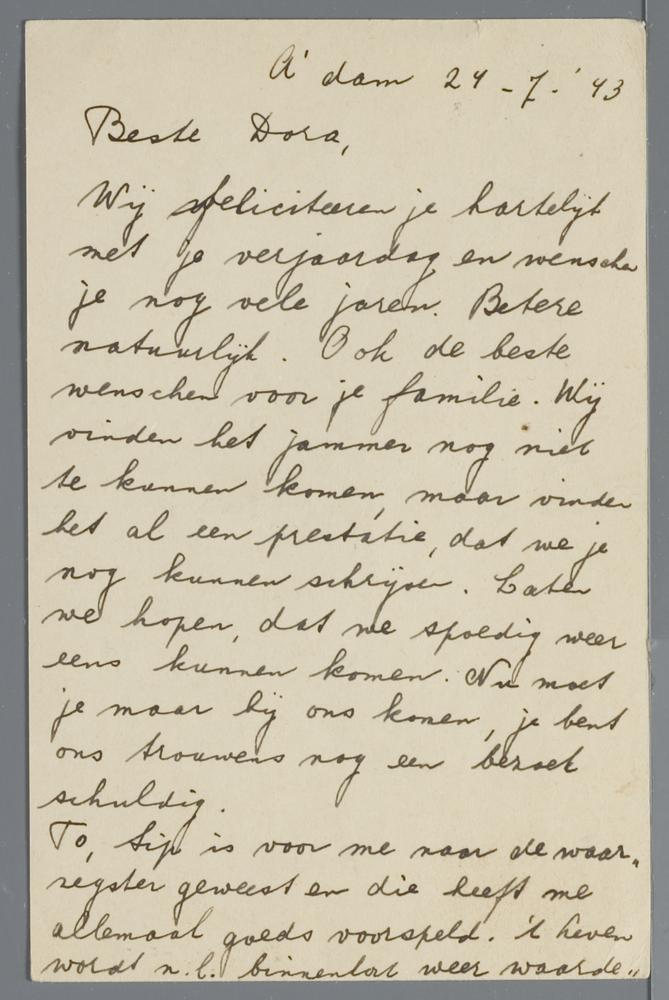 A'dam 24-7-'43
Beste Dora,
Wij feliciteeren je hartelijk
met je verjaardag en wenschen
je nog vele jaren. Betere
natuurlijk. Ook de beste
wenschen voor je familie. Wij
vinden het jammer nog niet
te kunnen komen, maar vinden
het al een prestatie, dat we je
nog kunnen schrijven. Laten
we hopen, dat we spoedig weer
eens kunnen komen. Nu moet
je maar bij ons komen, je bent
ons trouwens nog een bezoek
schuldig.
To, Sip is voor me naar de waar„
zegster geweest en die heeft me
allemaal goeds voorspeld. 't Leven
wordt n.l. binnenkort weer waarde„